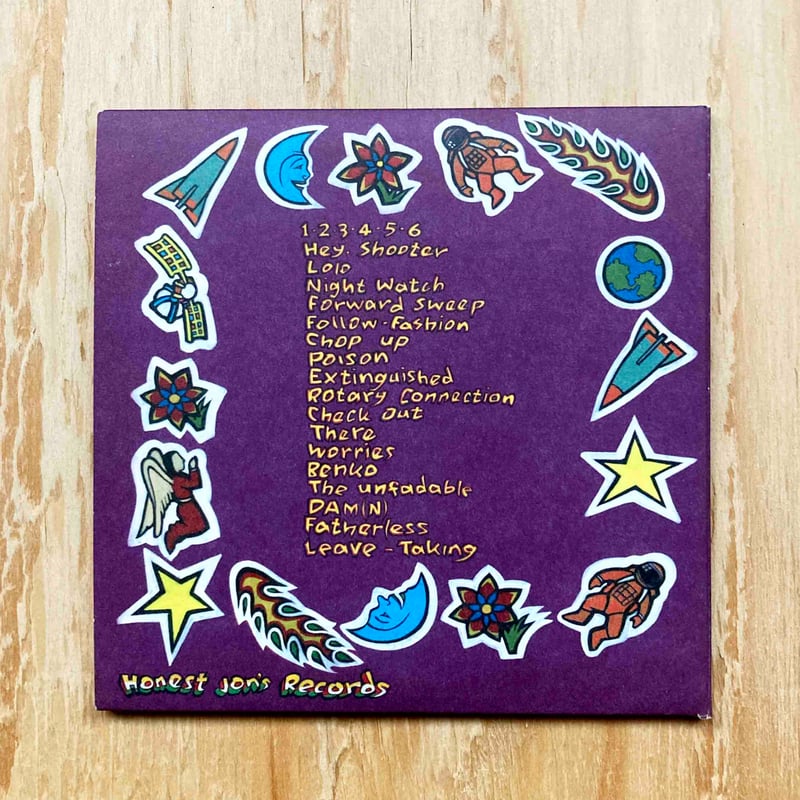 1·2 3·4·5·6
Hey. Shooter
Lolo
Night Watch
Forward Sweep
Follow-Fashion
Chop up
Poison
Extinguished
Rotary Connection
Check Out
There
Worries
Benko
The unfadable
DAM(N)
Fatherless
Leave - Taking
Honest Jon's Records